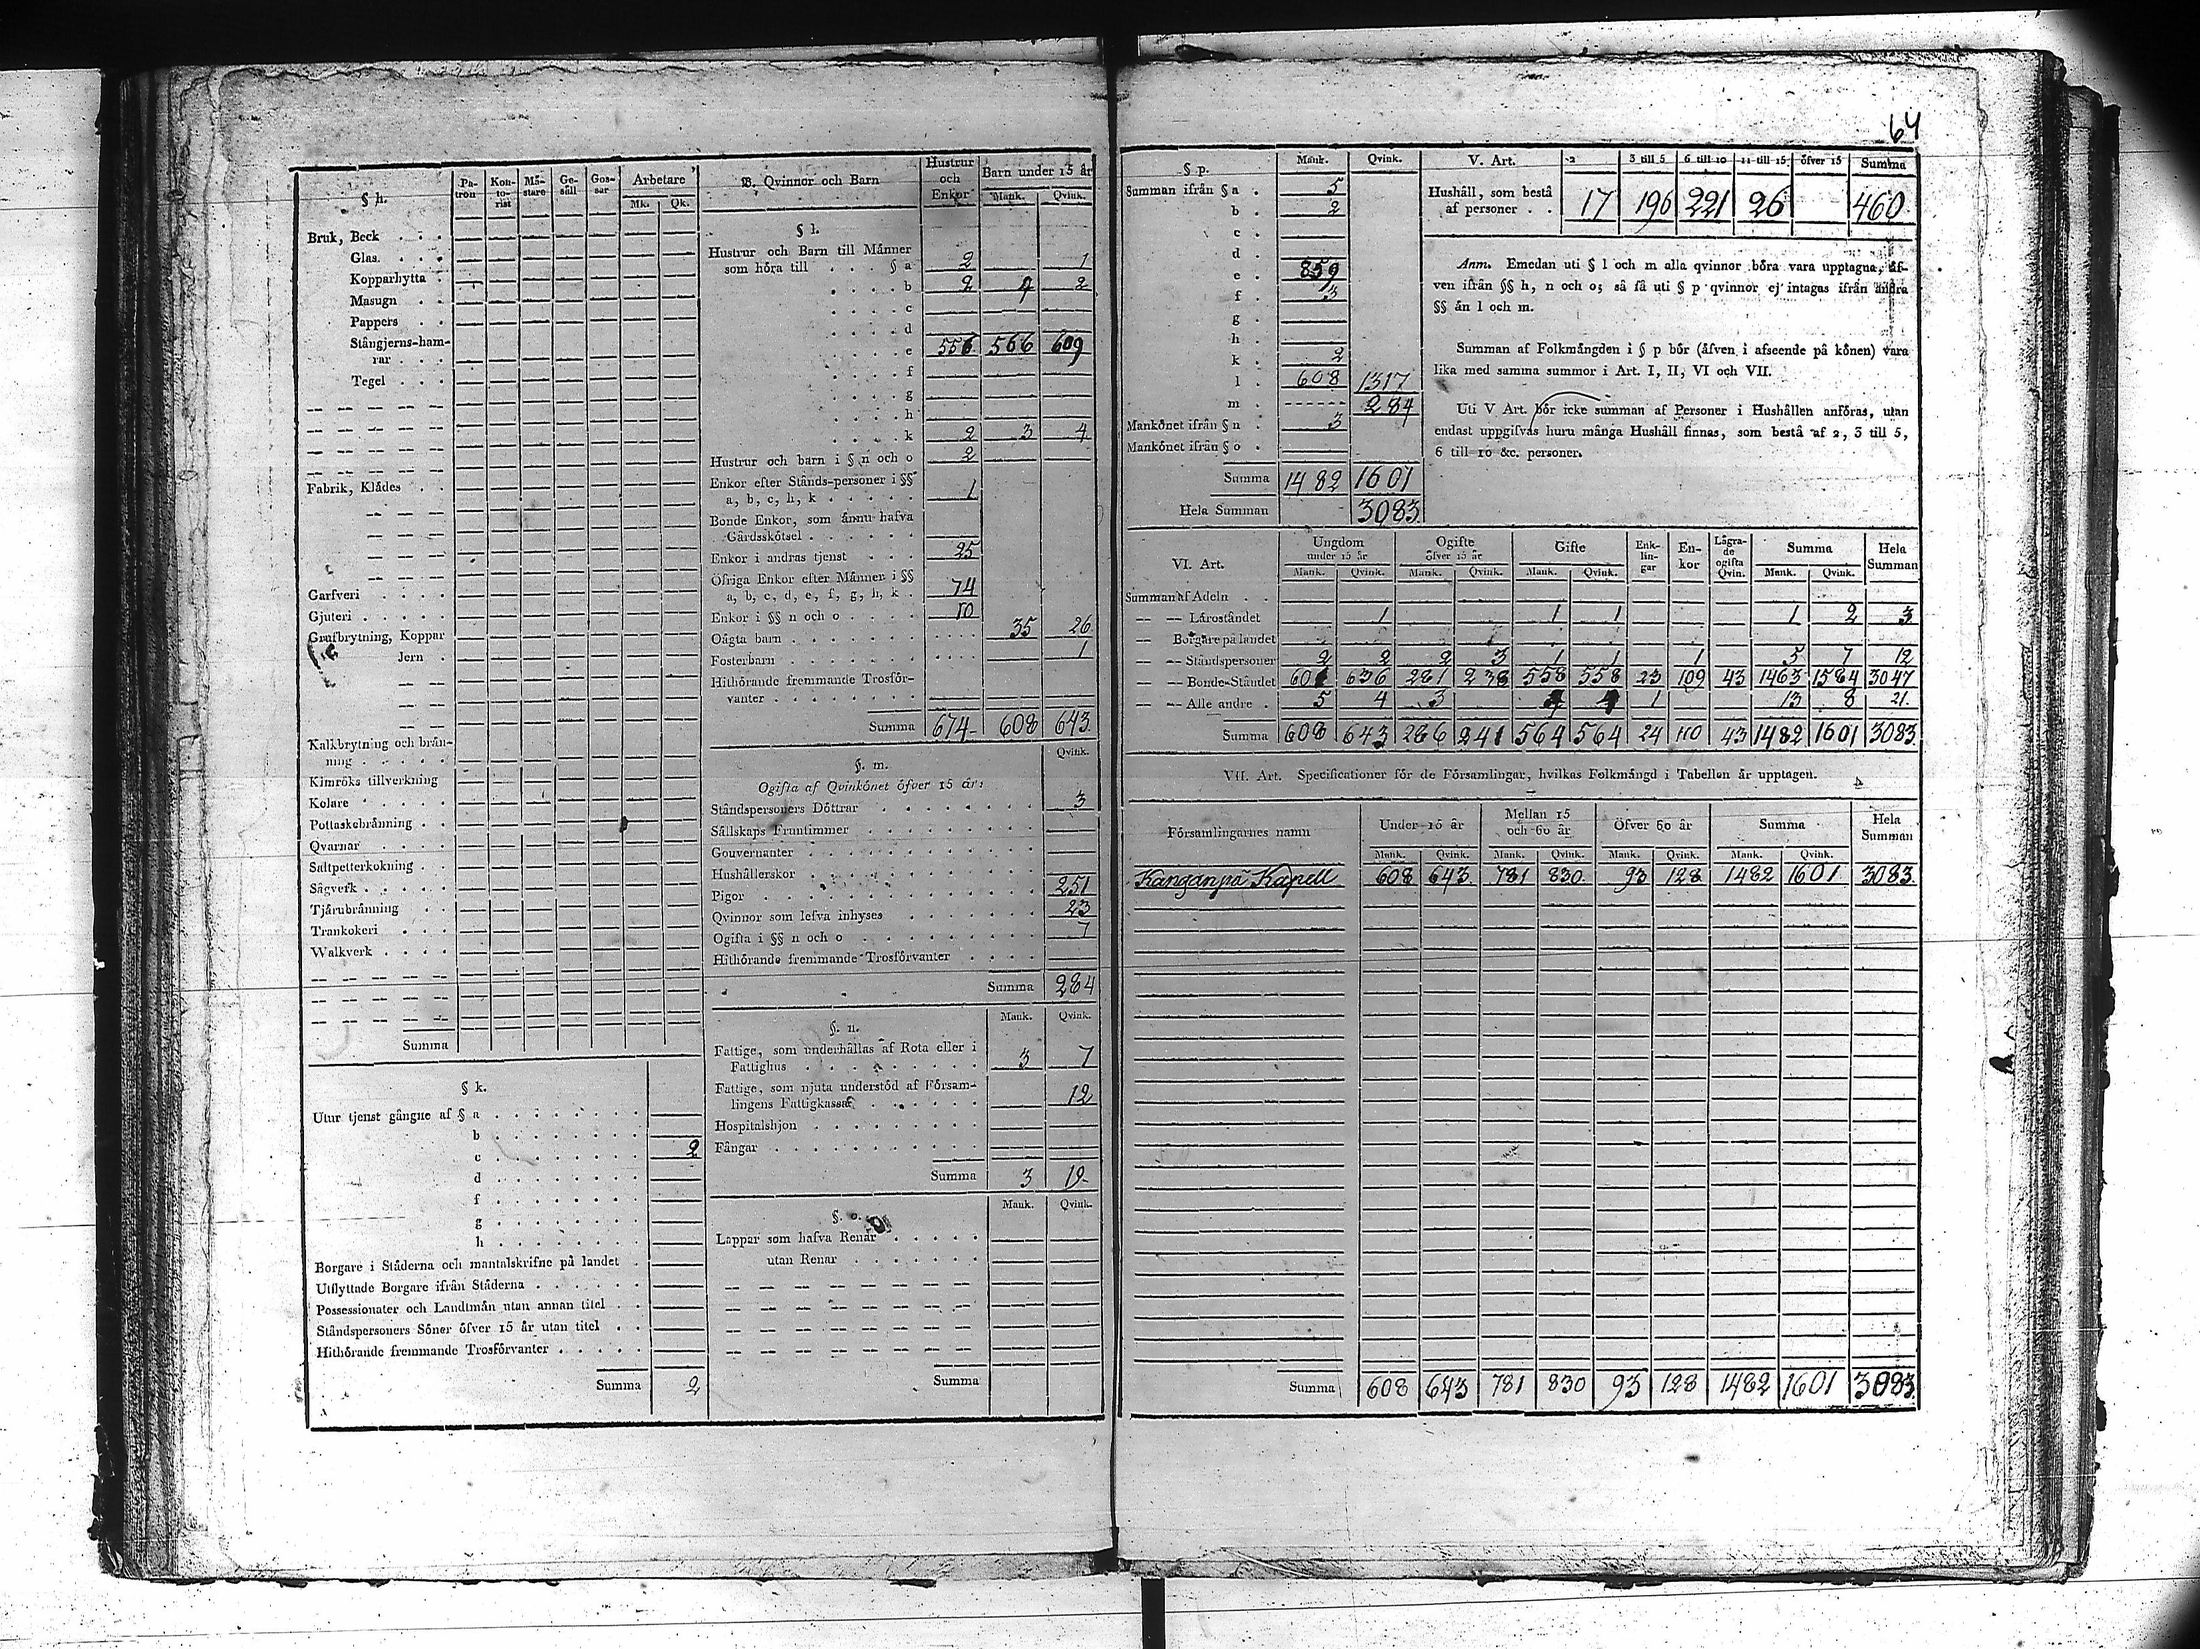 64
§ h.
Pa-
tron
Kon-
to-
rist
Mä-
stare
Ge-
säll
Gos-
sar
Arbetare
Mk. Qk.
Bruk, Beck . . .
Glas. . . .
Kopparhytta .
Masugn . .
Pappers . .
Stångjerns-ham-
rar . . .
Tegel . . .
Fabrik, Klådes . .
Garfveri . . . .
Gjuteri . . . . .
Grufbrytning, Koppar
Jern .
Kalkbrytning och brån-
ning . . . . .
Kimröks tillverkning
Kolare . . . . .
Pottaskebrånning . .
Qvarnar . . . .
Saltpetterkokning . .
Sågverk . . . . .
Tjårubrånning . .
Trankokeri . . .
Walkverk . . . .
Summa
§ k.
Utur tjenst gångne af § a . . . . . . . .
b . . . . . . . .
c . . . . . . . . 2
d . . . . . . . .
f . . . . . . . .
g . . . . . . . .
h . . . . . . . .
Borgare i Ståderna och mantalskrifne på landet .
Utflyttade Borgare ifrån Ståderna . . . . .
Possessionater och Landtmån utan annan titel . .
Ståndspersoners Söner öfver 15 år utan titel . .
Hithörande fremmande Trosförvanter . . . . .
Summa 2
B. Qvinnor och Barn
Hustrur
och
Enkor
Barn under 15 år
Mank. Qvink.
§ l.
Hustrur och Barn till Månner
som höra till . . . § a 2 1
. . . . b 2 2
. . . . c
. . . . d
. . . . e 556 566 609
. . . . f
. . . . g
. . . . h
. . . . k 2 3 4
Hustrur och barn i § n och o 2
Enkor efter Stånds-personer i §§
a, b, c, h, k . . . . . 1
Bonde Enkor, som ånnu hafva
Gårdsskötsel . . . . . .
Enkor i andras tjenst . . . 25
Öfriga Enkor efter Månner i §§
a, b, c, d, e, f, g, h, k . 74
Enkor i §§ n och o . . . . 10
Oågta barn . . . . . . . 35 26
Fosterbarn . . . . . . . 1
Hithörande fremmande Trosför-
vanter . . . . . . . .
Summa 674 608 643
§. m.
Qvink.
Ogifta af Qvinkönet öfver 15 år:
Ståndspersoners Döttrar . . . . . . . 3
Sållskaps Fruntimmer . . . . . . . .
Gouvernanter . . . . . . . . . .
Hushållerskor . . . . . . . . . .
Pigor . . . . . . . . . . . . 251
Qvinnor som lefva inhyses . . . . . . . 23
Ogifta i §§ n och o . . . . . . . . . 7
Hithörande fremmande Trosförvanter . . . .
Summa 284
§. n.
Mank. Qvink.
Fattige, som underhållas af Rota eller i
Fattighus . . . . . . . . . 3 7
Fattige, som njuta understöd af Försam-
lingens Fattigkassa . . . . . . 12
Hospitalshjon . . . . . . . . .
Fångar . . . . . . . . . . .
Summa 3 19
§. o.
Mank. Qvink.
Lappar som hafva Renar . . . . .
utan Renar . . . . . . .
Summa
§ p.
Mank. Qvink.
Summan ifrån § a . 5
b . 2
c .
d .
e . 859
f . 3
g .
h .
k . 2
l . 608 1317
m . 284
Mankönet ifrån § n . 3
Mankönet ifrån § o .
Summa 1482 1601
Hela Summan 3083
V. Art.
2 3 till 5 6 till 10 11 till 15 öfver 15 Summa
Hushåll, som bestå
af personer . . 17 196 221 26 460
Anm. Emedan uti § l och m alla qvinnor böra vara upptagna, åf-
ven ifrån §§ h, n och o; så få uti § p qvinnor ej intagas ifrån andra
§§ ån l och m.
Summan af Folkmångden i § p bör (åfven i afseende på könen) vara
lika med samma summor i Art. I, II, VI och VII.
Uti V Art. bör icke summan af Personer i Hushållen anföras, utan
endast uppgifvas huru många Hushåll finnas, som bestå af 2, 3 till 5,
6 till 10 &c. personer.
VI. Art.
Ungdom
under 15 år
Ogifte
öfver 15 år
Gifte
Enk-
lin-
gar
En-
kor
Lågra-
de
ogifta
Qvin.
Summa
Hela
Summan
Mank. Qvink. Mank. Qvink. Mank. Qvink. Mank. Qvink.
Summan af Adeln . .
— — Låroståndet 1 1 1 1 2 3
— Borgare på landet
— — Ståndspersoner 2 2 2 3 1 1 1 5 7 12
— — Bonde-Ståndet 601 636 281 238 558 558 23 109 43 1463 1584 3047
— — Alle andre . 5 4 3 4 4 1 13 8 21
Summa 608 643 286 241 564 564 24 110 43 1482 1601 3083
VII. Art. Specificationer för de Församlingar, hvilkas Folkmångd i Tabellen år upptagen.
Församlingarnes namn
Under 15 år
Mellan 15
och 60 år
Öfver 60 år
Summa
Hela
Summan
Mank. Qvink. Mank. Qvink. Mank. Qvink. Mank. Qvink.
Kanganpä Kapell 608 643 781 830 93 128 1482 1601 3083
Summa 608 643 781 830 93 128 1482 1601 3083